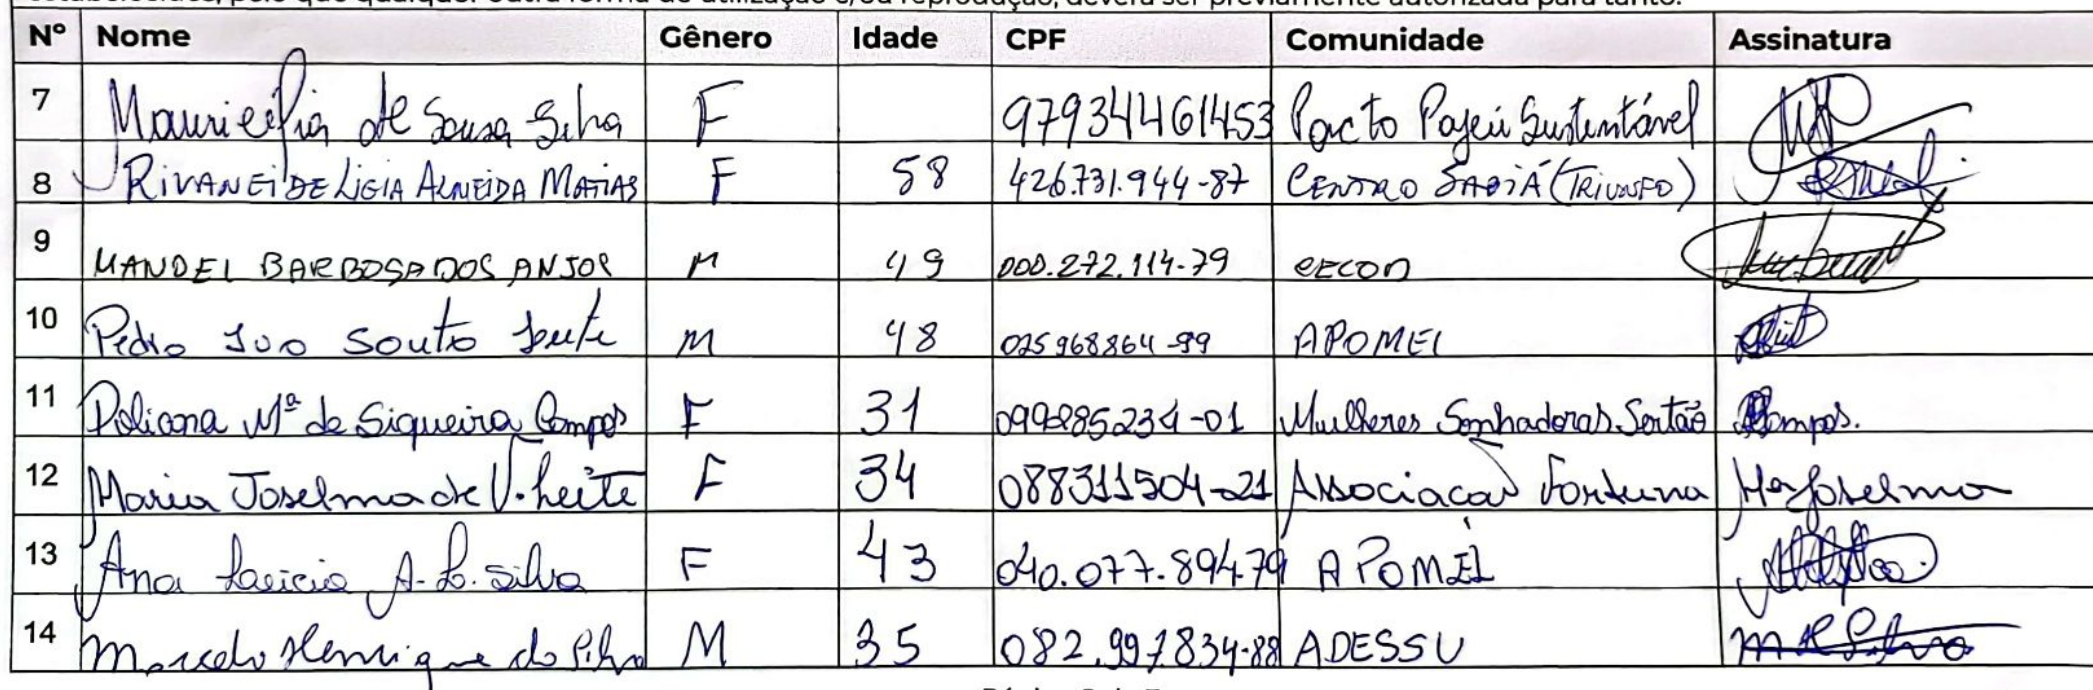 Nº Nome Gênero Idade CPF Comunidade Assinatura
7 Mauriceifia de Sousa Silva F 97934461453 Pacto Pajeú Sustentável
8 RIVANEIDE LIGIA ALMEIDA MATIAS F 58 426.731.944-87 CENTRO SABIÁ (TRIUNFO)
9 MANOEL BARBOSA DOS ANJOS M 49 000.272.114-79 CECOR
10 Pedro Ivo Souto Leite M 48 025968864-99 APOMEL
11 Poliana Mª de Siqueira Campos F 31 099285234-01 Mulheres Sonhadoras Sertão Campos.
12 Maria Joselma de V. Leite F 34 088311504-21 Associacao Fortuna Mª Joselma
13 Ana A. L. Silva F 43 040.077.894.79 APOMEL
14 Marcelo Henrique da Silva M 35 082.997834-88 ADESSU M H Silva